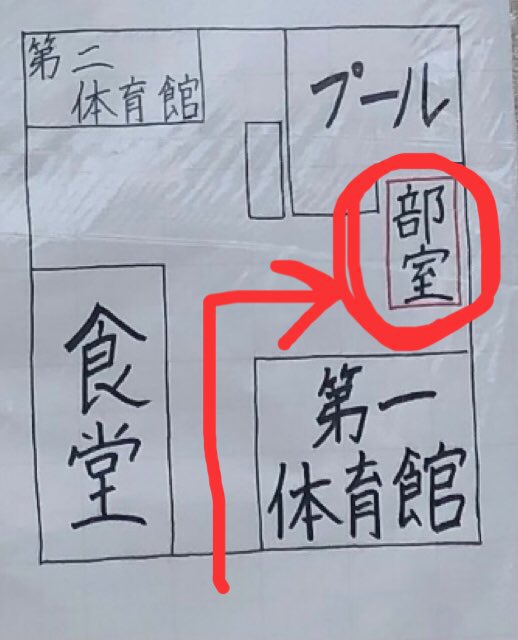 第二
体育館
プール
部室
食堂
第一
体育館